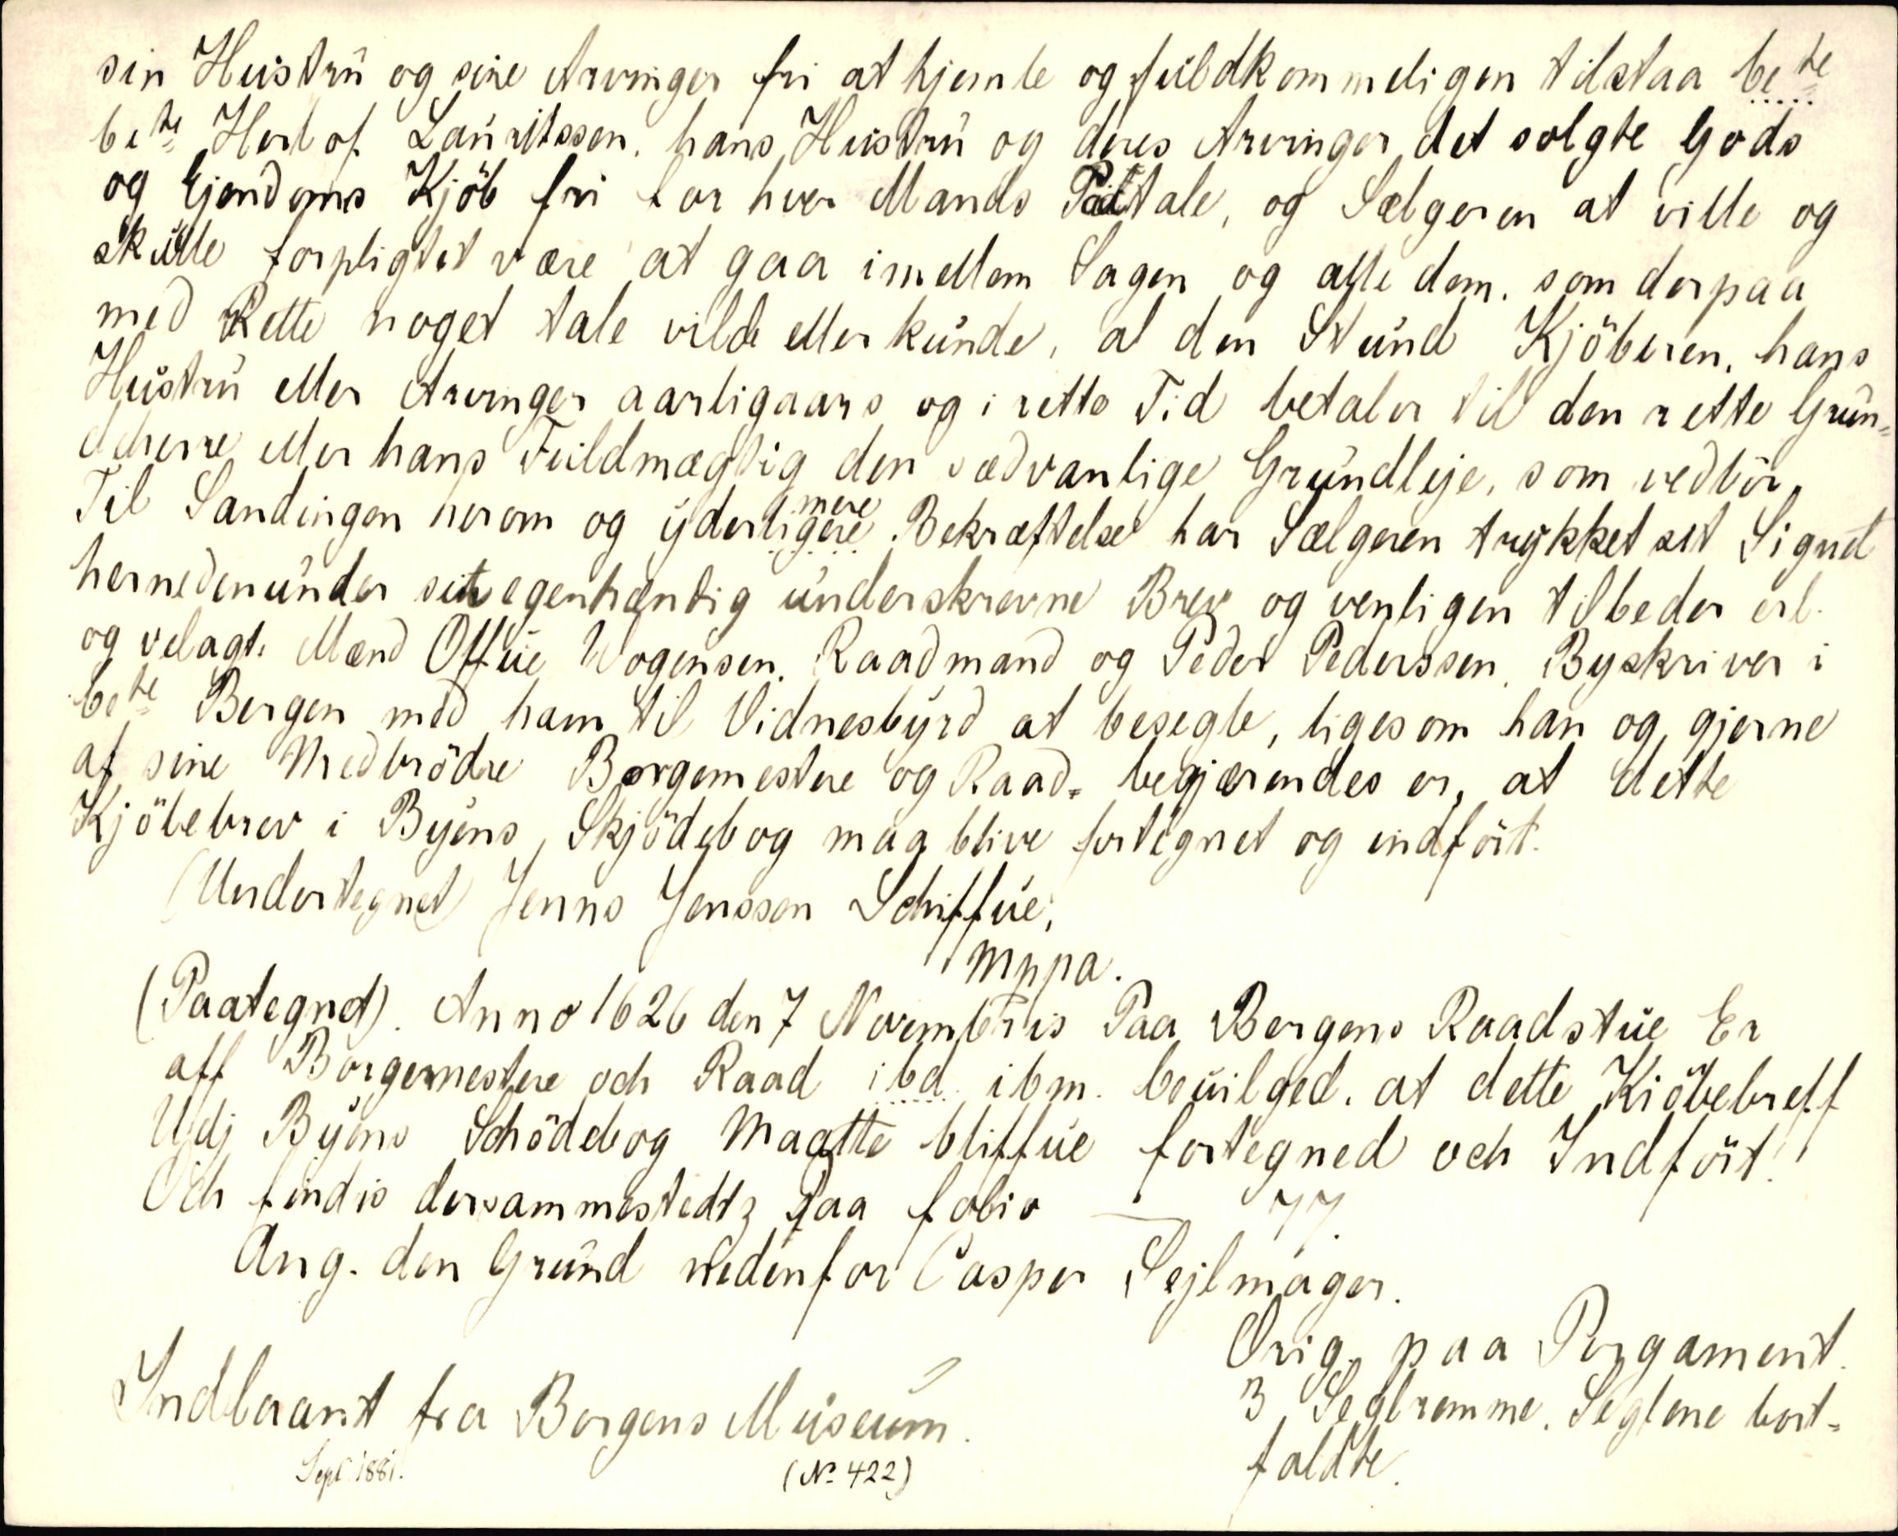 sin Hustru og sine Arvinger fri at hjemle og fuldkommeligen tilstaa bete
bete Herlof Lauritssen, hans Hustru og deres Arvinger det solgte Gods
og Ejendoms Kjöb fri for hver Mands Paatale, og Sælgeren at ville og
skulle forpligtet være at gaa imellem Sagen og alle dem, som derpaa
med Rette noget tale vilde eller kunde, al den Stund Kjöberen, hans
Hustru eller Arvinger aarligaars og i rette Tid betaler til den rette Grun-
dherre eller hans Fuldmægtig den sædvanlige Grundleje, som vedbör.
Til Sandingen herom og yderligere mere Bekræftelse har Sælgeren trykket sit Signet
hernedenunder sit egenhændig underskrevne Brev og venligen tilbeder erl.
og velagt. Mænd Offue Wogensen, Raadmand og Peder Pederssen, Byskriver i
bete Bergen med ham til Vidnesbyrd at besegle, ligesom han og gjerne
af sine Medbrödre Borgemestere og Raad begjærendes er, at dette
Kjöbebrev i Byens Skjödebog maa blive fortegnet og indfört.
(Undertegnet) Jenns Jenssen Schiffue,
mppa.
(Paategnet). Anno 1626 den 7 Novembris Paa Bergens Raadstue Er
aff Borgemestere och Raad ibd ibm. beuilged, at dette Kiöbebreff
Udj Byens Schödebog Maatte bliffue fortegned och Indfört.
Och findis dersammestedtz paa folio — 77.
Ang. den Grund nedenfor Casper Sejlmager.
Orig. paa Pergament.
3 Seglremme. Seglene bort-
faldte.
Indlaant fra Bergens Museum.
Sept 1881.
(No 422)